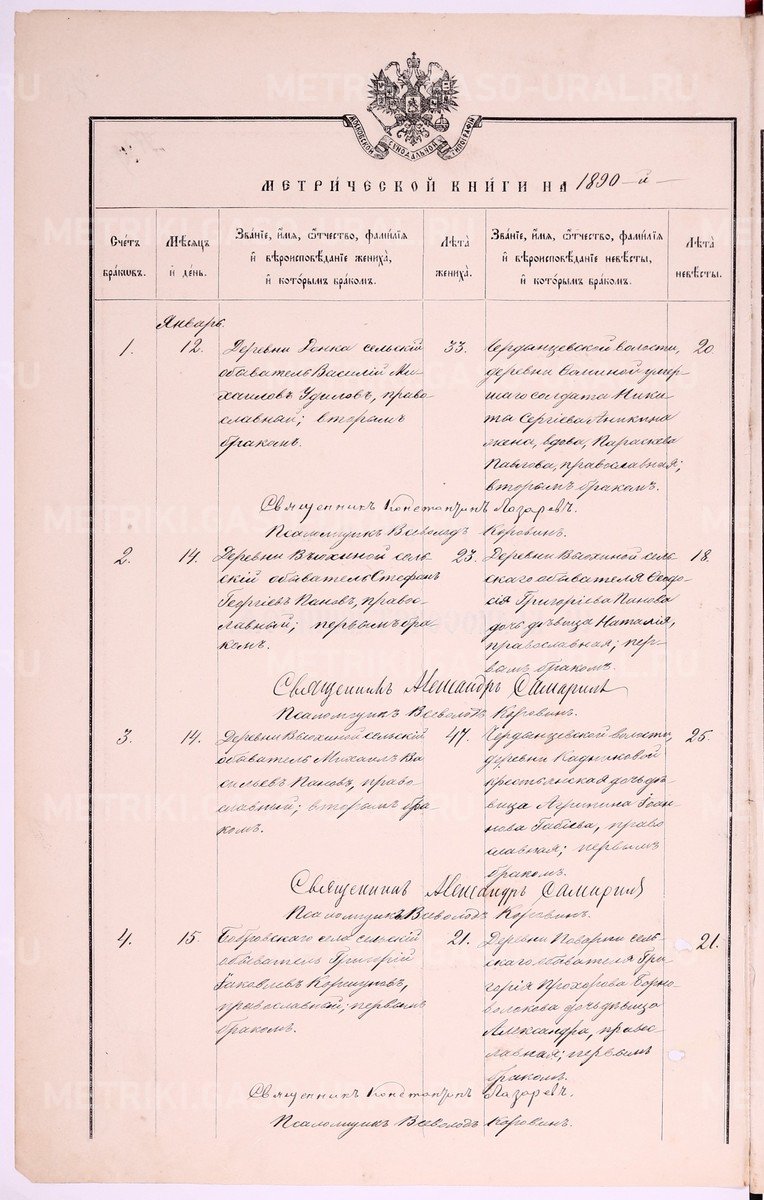 МОСКОВСКОЙ СѴНОДАЛЬНОЙ ТИПОГРАФІИ
МЕТРИ́ЧЕСКОЙ КНИ́ГИ НА 1890-й
Сче́тъ бра́кωвъ.
Мѣ́сяцъ и҆ де́нь.
Зва́нїе, и҆́мя, ѻ҆́тчество, фами́лїя и҆ вѣроисповѣ́данїе жениха̀, и҆ кото́рымъ бра́комъ.
Лѣ́та жениха̀.
Зва́нїе, и҆́мя, ѻ҆́тчество, фами́лїя и҆ вѣроисповѣ́данїе невѣ́сты, и҆ кото́рымъ бра́комъ.
Лѣ́та невѣ́сты.
Январь.
1.
12.
Деревни сельскій
обыватель Василій Ми-
хаиловъ Удиловъ, право-
славный; вторымъ
бракомъ.
33.
волости,
деревни умер-
шаго солдата Ники-
ты Сергіева Аникина
жена, вдова, Параскева
Павлова, православная;
вторымъ бракомъ.
20.
Священникъ Константинъ Лазаревъ.
Псаломщикъ Всеволодъ Коровинъ.
2.
14.
Деревни Вьюхиной сель-
скій обыватель Стефанъ
Георгіевъ Пановъ, право-
славный; первымъ бра-
комъ.
23.
Деревни Вьюхиной сель-
скаго обывателя Ѳеодо-
сія Григоріева Панова
дочь дѣвица Наталія,
православная; пер-
вымъ бракомъ.
18.
Священникъ Александръ
Псаломщикъ Всеволодъ Коровинъ.
3.
14.
Деревни Вьюхиной сельскій
обыватель Михаилъ Ва-
сильевъ Пановъ, право-
славный; вторымъ бра-
комъ.
47.
волости,
деревни Кадниковой
крестьянская дочь дѣ-
вица Іоан-
нова право-
славная; первымъ
бракомъ.
25.
Священникъ Александръ
Псаломщикъ Всеволодъ Коровинъ.
4.
15.
Бобровскаго села сельскій
обыватель Григорій
Іаковлевъ Коршуновъ,
православный; первымъ
бракомъ.
21.
Деревни Поварни сель-
скаго обывателя Гри-
горія Прохорова Борно-
волокова дочь дѣвица
Александра, право-
славная; первымъ
бракомъ.
21.
Священникъ Константинъ Лазаревъ.
Псаломщикъ Всеволодъ Коровинъ.
METRIKI.GASO-URAL.RU